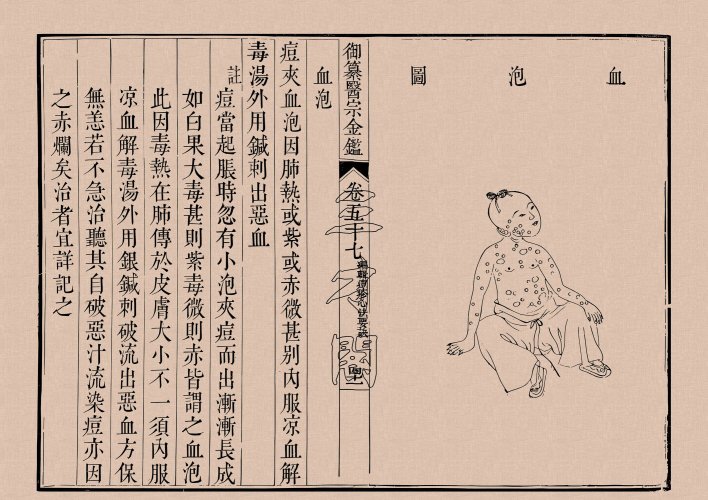 血泡圖
御纂醫宗金鑑
卷五十七
血泡
痘夾血泡因肺熱或紫或赤微甚别內服凉血解
毒湯外用鍼刺出惡血
註
痘當起脹時忽有小泡夾痘而出漸漸長成
如白果大毒甚則紫毒微則赤皆謂之血泡
此因毒熱在肺傳於皮膚大小不一須內服
凉血解毒湯外用銀鍼刺破流出惡血方保
無恙若不急治聽其自破惡汁流染痘亦因
之赤爛矣治者宜詳記之